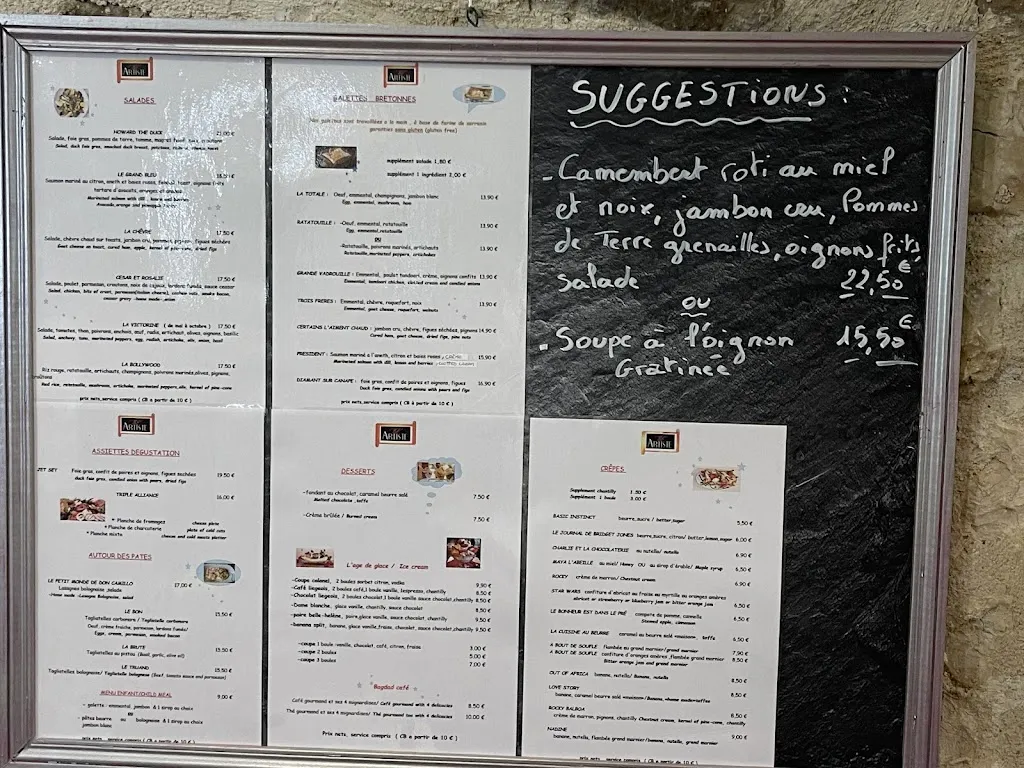 ARTISTE
SALADES
HOWARD THE DUCK
Salade, foie gras, pommes de terre, tomme, magret fumé, noix, croutons
Salad, duck foie gras, smocked duck breast, potatoes,
LE GRAND BLEU
Saumon marine au citron, aneth et baies roses, toast, oignons frits
tartare d'avocats, oranges et ananas
Marinated salmon with dill,
Avocado, orange and pineapple
LA CHÈVRE 17.50 €
Salade, chèvre chaud sur toasts, jambon cru, pommes, pignon, figues séchées
Goat cheese on toast, cured ham, apple, kernel of pine-cone, dried figs
CESAR ET ROSALIE 17.50 €
Salade, poulet, parmesan, croutons, noix de cajoux, lardons fumés, sauce ceasar
Salad, chicken, bits of crust, parmesan(italian cheese), cashew nuts, smoke bacon,
ceasar gravy -home made-
LA VICTORINE ( de mai à octobre ) 17.50 €
Salade, tomates, thon, poivrons, anchois, œuf, radis, artichaut, olives, oignons, basilic
Salad, anchovy, tuna, marinated peppers, egg, radish, artichoke, oliv, onion, basil
LA BOLLYWOOD 17.50 €
Riz rouge, ratatouille, artichauts, champignons, poivrons marinés, olives, pignons,
croûtons
Red rice, ratatouille, mushroom, artichoke, marinated peppers, oliv, kernel of pine-cone
prix nets, service compris ( CB a partir de 10 € )
ARTISTE
GALETTES BRETONNES
Nos galettes sont travaillées a la main , à base de farine de sarrasin
garanties sans gluten (gluten free)
supplément salade 1,80 €
supplément 1 ingrédient 2,00 €
LA TOTALE : Oeuf, emmental, champignons, jambon blanc 13.90 €
Egg, emmental, mushroom, ham
RATATOUILLE : -Oeuf, emmental, ratatouille 13.90 €
Egg, emmental, ratatouille
ou
-Ratatouille, poivrons marinés, artichauts 13.90 €
Ratatouille, marinated peppers, artichokes
GRANDE VADROUILLE : Emmental, poulet tandoori, crème, oignons confits 13.90 €
Emmental, tandoori chicken, clotted cream and candied onions
TROIS FRERES : Emmental, chèvre, roquefort, noix 13.90 €
Emmental, goat cheese, roquefort, walnuts
CERTAINS L'AIMENT CHAUD : jambon cru, chèvre, figues séchées, pignons 14.90 €
Cured ham, goat cheese, dried figs, pine nuts
PRESIDENT : Saumon mariné a l'aneth, citron et baies roses, crème 15.90 €
Marinated salmon with dill, lemon and berries, clotted cream
DIAMANT SUR CANAPE : foie gras, confit de poires et oignons, figues 16.90 €
Duck foie gras, candied onions with pears and figs
prix nets, service compris ( CB à partir de 10 € )
SUGGESTIONS :
- Camembert roti au miel
et noix, jambon cru, Pommes
de Terre grenailles, oignons frits,
salade 22,50 €
ou
. Soupe a l'oignon 15,50 €
Gratinée
ARTISTE
ASSIETTES DEGUSTATION
JET SET Foie gras, confit de poires et oignons, figues sechées 19.50 €
duck foie gras, candied onion with pears, dried figs
TRIPLE ALLIANCE 16.00 €
* Planche de fromages cheese plate
* Planche de charcuterie plate of cold cuts
* Planche mixte cheese and cold meats platter
AUTOUR DES PATES
LE PETIT MONDE DON CAMILLO 17.00 €
Lasagnes bolognaise, salade
-Home made -Lasagna Bolognaise, salad
LE BON 15.50 €
Tagliatelles carbonara / Tagliatelle carbonara
Oeuf, crème fraiche, parmesan, lardons fumés/
Eggs, creme, parmesan, smocked bacon
LA BRUTE 15.50 €
Tagliatelles au pistou (Basil, garlic, olive oil)
LE TRUAND 15.50 €
Tagliatelles bolognaises/ Tagliatelle bolognese (Beef, tomato sauce and parmesan)
MENU ENFANT/CHILD MEAL 9.00 €
- galette : emmental, jambon & 1 sirop au choix
ou
- pâtes beurre ou bolognaise & 1 sirop au choix
jambon blanc
prix nets, service compris ( CB a partir de 10 € )
ARTISTE
DESSERTS
-fondant au chocolat, caramel beurre salé 7.50 €
Melted chocolate , toffe
-Crème brûlée / Burned cream 7.50 €
L'age de glace / Ice cream
-Coupe colonel, 2 boules sorbet citron, vodka 9.90 €
-Café liegeois, 2 boules café,1 boule vanille, 1expresso, chantilly 8.50 €
-Chocolat liegeois, 2 boules chocolat,1 boule vanille sauce chocolat,chantilly 8.50 €
-Dame blanche, glace vanille, chantilly, sauce chocolat 8.50 €
-poire belle-helène, poire,glace vanille, sauce chocolat, chantilly 9.50 €
-banana split, banane, glace vanille,fraise, chocolat, sauce chocolat,chantilly 9.50 €
-coupe 1 boule vanille, chocolat, café, citron, fraise 3.00 €
-coupe 2 boules 5.00 €
-coupe 3 boules 7.00 €
Bagdad café
Café gourmand et ses 4 mignardises/ Café gourmand with 4 delicacies 8.50 €
Thé gourmand et ses 4 mignardises/ Thé gourmand too with 4 delicacies 10.00 €
Prix nets, service compris ( CB a partir de 10 € )
ARTISTE
CRÊPES
Supplement chantilly 1.50 €
Supplement 1 boule 3.00 €
BASIC INSTINCT beurre,sucre / butter,sugar 5.50 €
LE JOURNAL DE BRIDGET JONES beurre,sucre, citron/ butter,lemon,sugar 6.00 €
CHARLIE ET LA CHOCOLATERIE au nutella/ nutella 6.90 €
MAYA L'ABEILLE au miel/ Honey OU au sirop d'érable/ Maple syrup 6.50 €
ROCKY crème de marron/ Chestnut cream 6.90 €
STAR WARS confiture d'abricot au fraise ou myrtille ou oranges amères
abricot or strawberry or blueberry jam or bitter orange jam 6.50 €
LE BONHEUR EST DANS LE PRÉ compote de pomme, cannelle 6.50 €
Stewed apple, cinnamon
LA CUISINE AU BEURRE caramel au beurre salé «maison», toffe 6.50 €
A BOUT DE SOUFLE flambée au grand marnier/grand marnier 7.90 €
A BOUT DE SOUFLE confiture d'oranges amères ,flambée grand marnier 8.50 €
Bitter orange jam and grand marnier
OUT OF AFRICA banane, nutella/ Banana, nutella 8.50 €
LOVE STORY 8.50 €
banane, caramel beurre salé «maison»/Banana, «home made»toffee
ROCKY BALBOA 8.50 €
crème de marron, pignons, chantilly Chestnut cream, kernel of pine-cone, chantilly
NADINE 9.00 €
banane, nutella, flambée grand marnier/banana, nutella, grand marnier
prix nets, service compris ( CB a partir de 10 € )